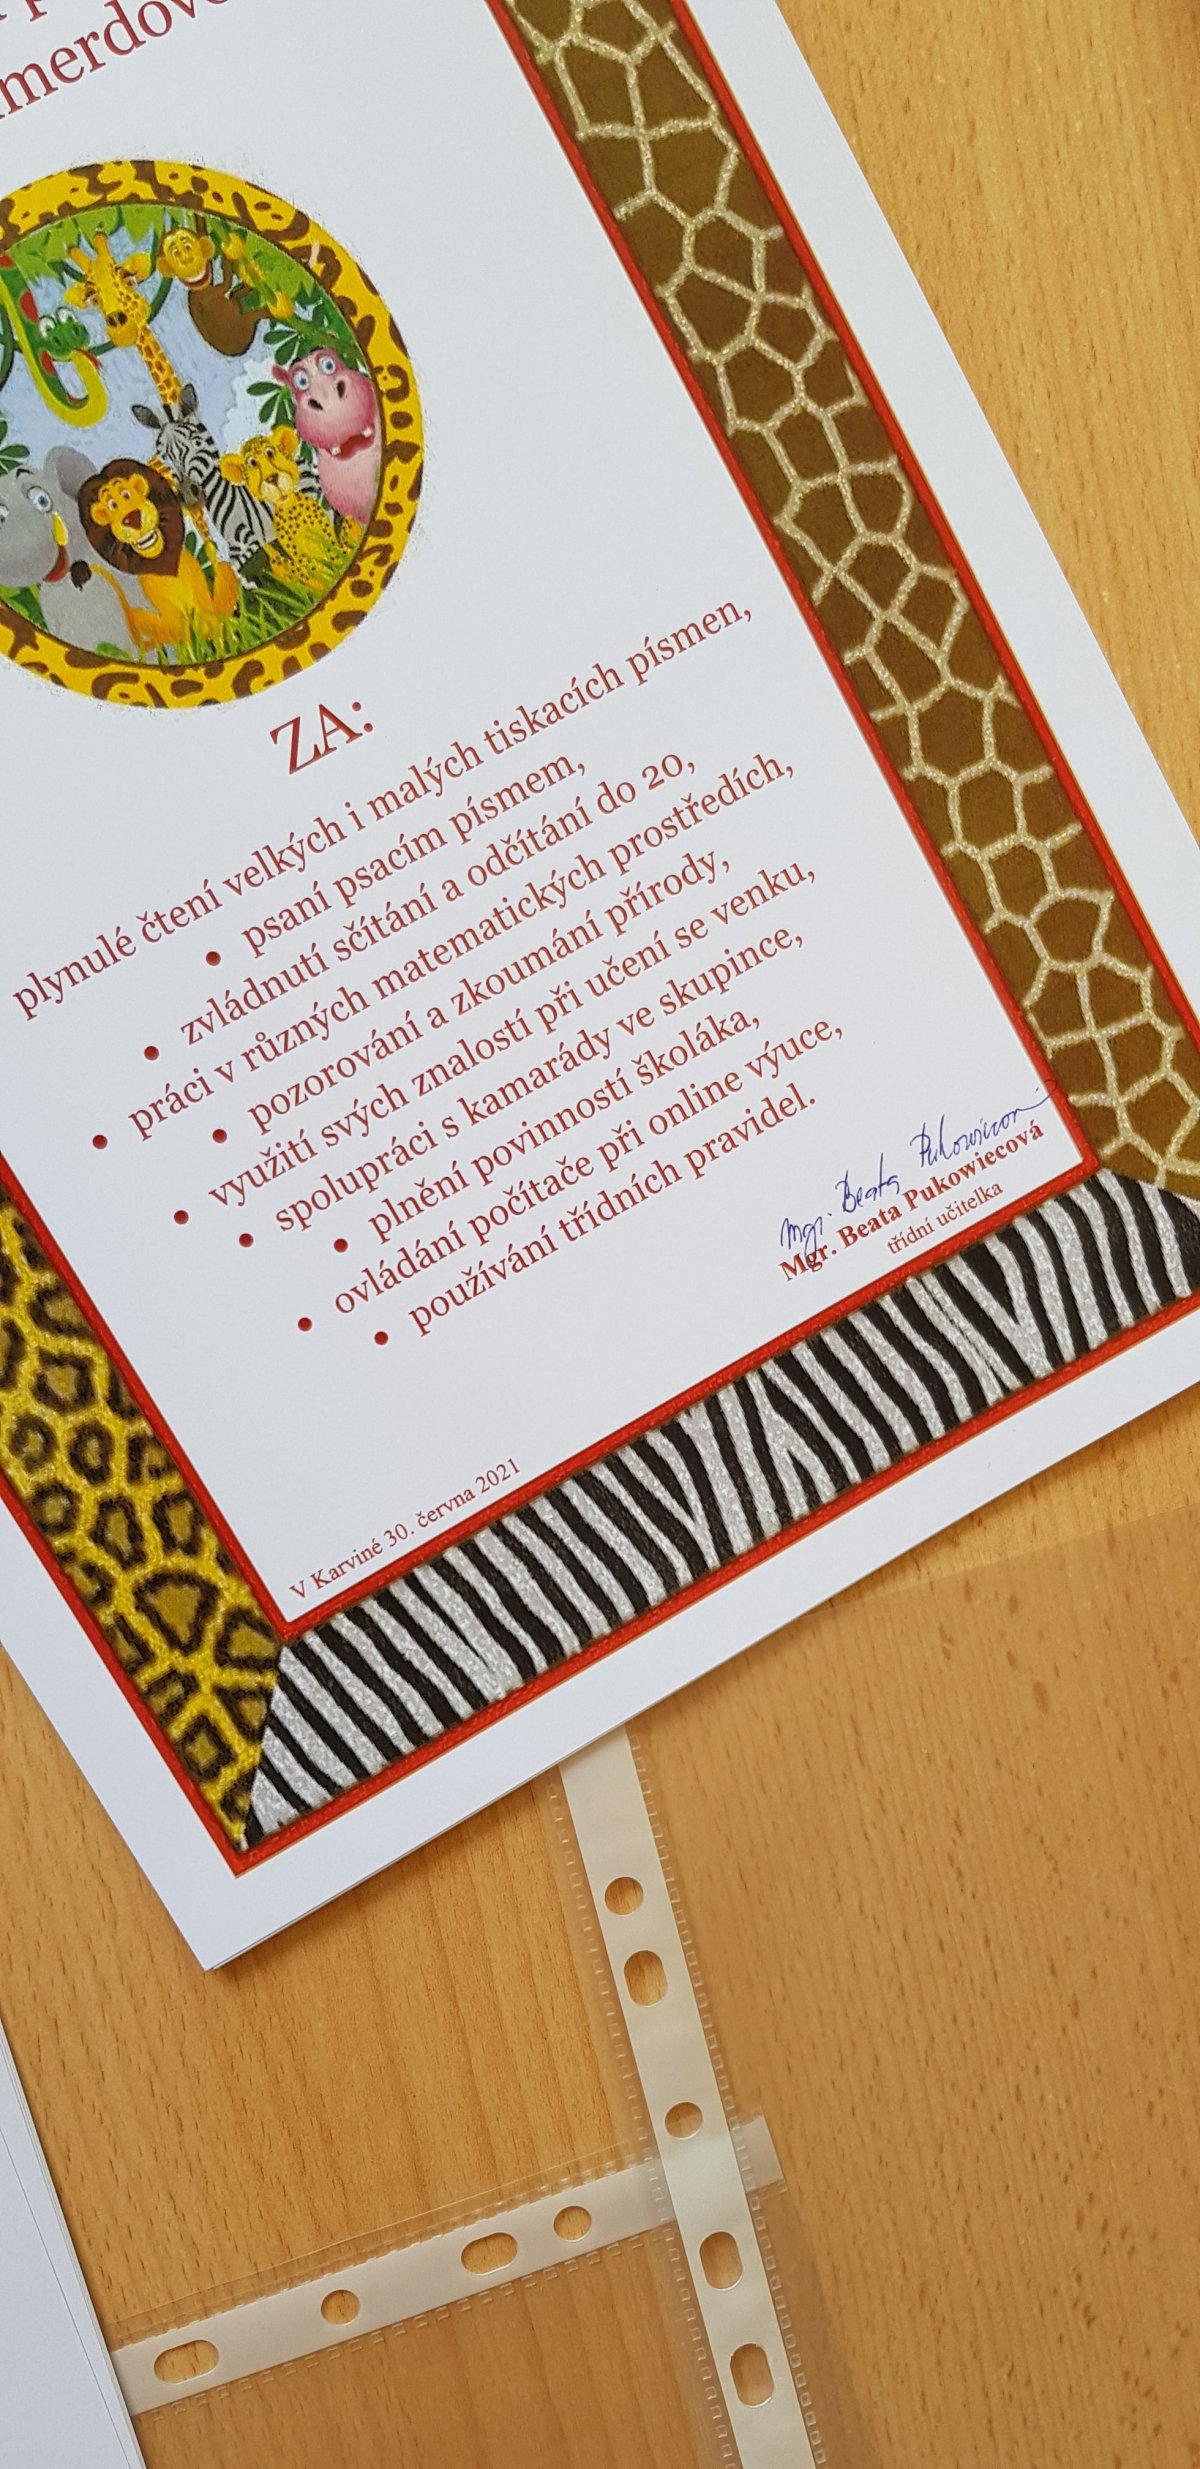 ZA:
plynulé čtení velkých i malých tiskacích písmen,
• psaní psacím písmem,
• zvládnutí sčítání a odčítání do 20,
• práci v různých matematických prostředích,
• pozorování a zkoumání přírody,
• využití svých znalostí při učení se venku,
• spolupráci s kamarády ve skupince,
• plnění povinností školáka,
• ovládání počítače při online výuce,
• používání třídních pravidel.
Mgr. Beata Pukowiecová
Mgr. Beata Pukowiecová
třídní učitelka
V Karviné 30. června 2021